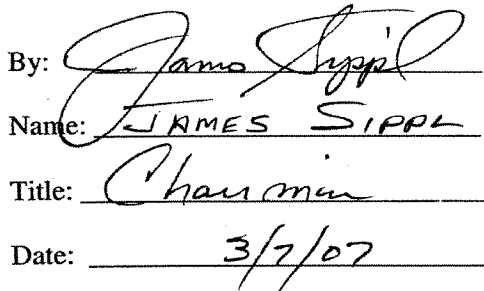 By: James Sippl
Name: JAMES SIPPL
Title: Chairman
Date: 3/7/07